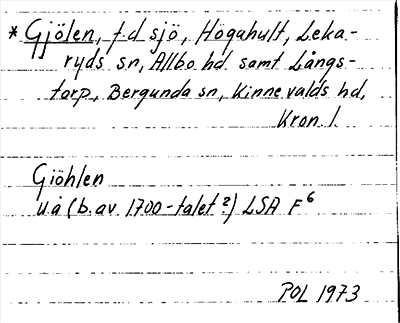 * Gjölen, f.d sjö, Högahult, Leka-
ryds sn, Allbo hd samt Långs-
torp, Bergunda sn, Kinnevalds hd,
Kron. l.
Giöhlen
u.å (b. av 1700-talet?) LSA F6
POL 1973